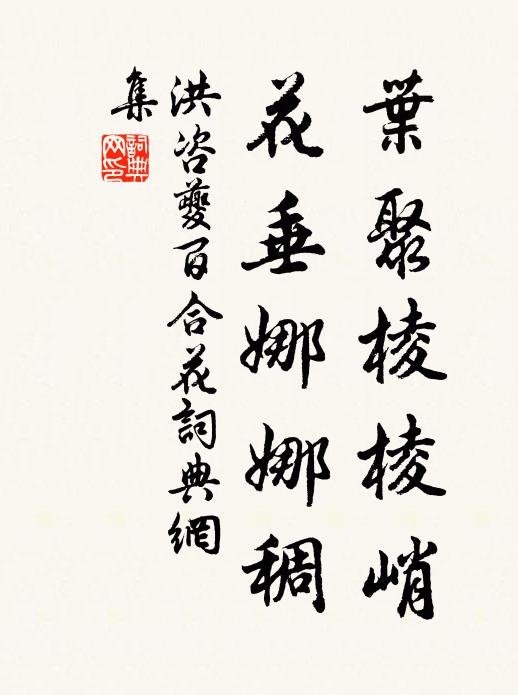 葉聚棱棱峭
花垂娜娜稠
洪咨夔百合花詞典網
集
詞典網印